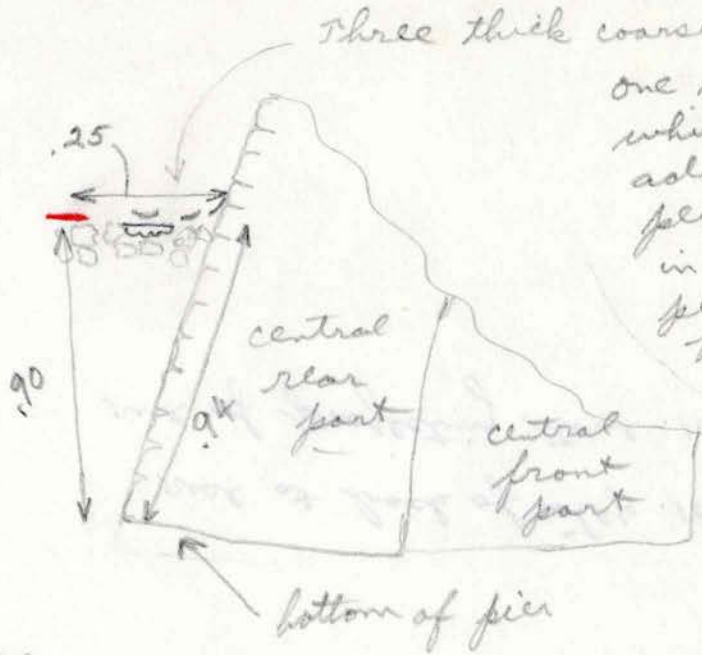 Three thick coarse
one
whi
.25
ad
pe
in
pe
.90
central
rear
part
.94
central
front
part
bottom of pier